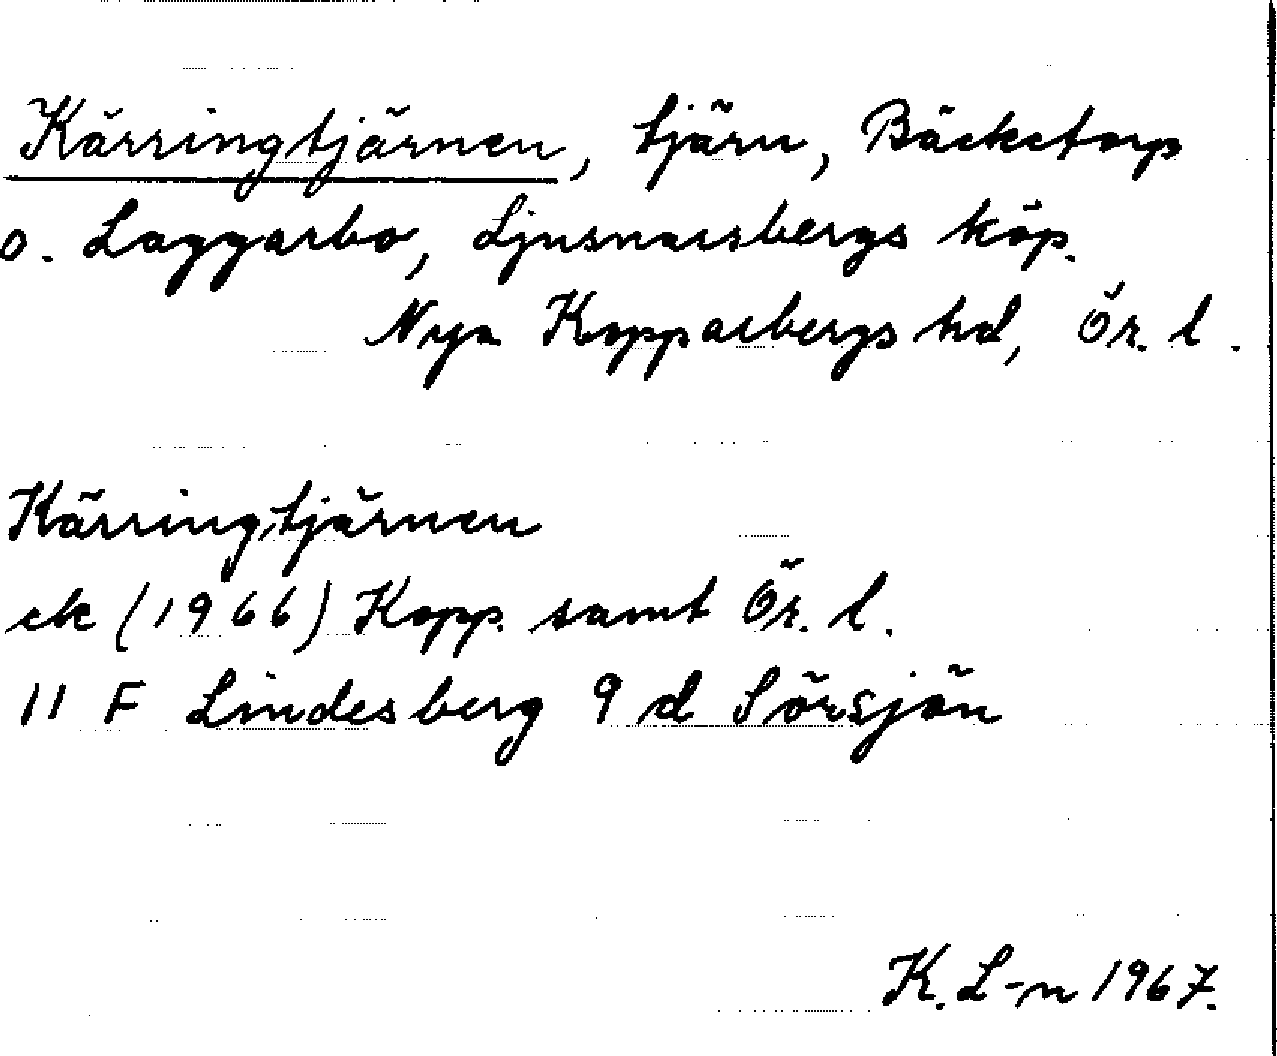 Kärringtjärnen, tjärn, Bäcketorp
o. Laggarbo, Ljusnarsbergs köp.
Nya Kopparbergs hd, Ör. l.
Kärringtjärnen
ek (1966) Kopp. samt Ör. l.
11 F Lindesberg 9 d Sörsjön
K. L-n 1967.